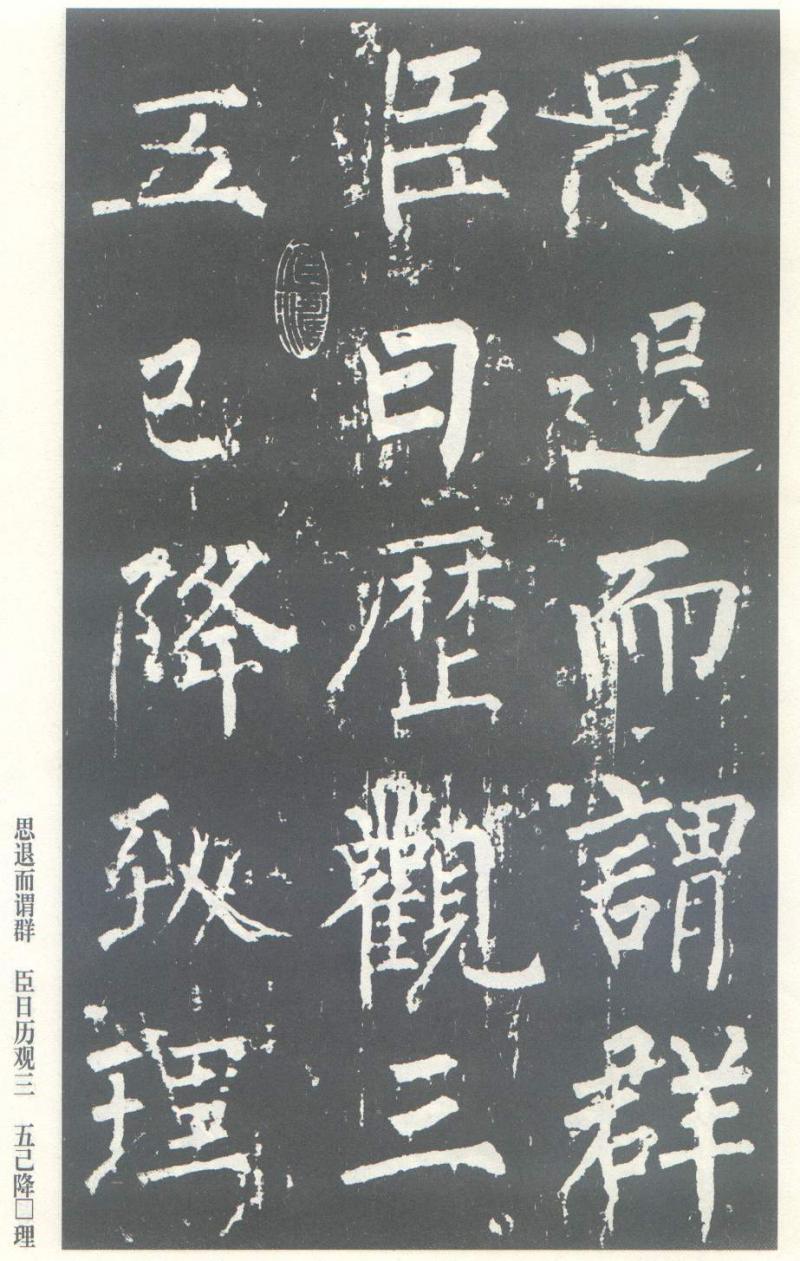 思退而謂群
臣曰歴觀三
五己降致理
思退而谓群　臣日历观三　五己降□理